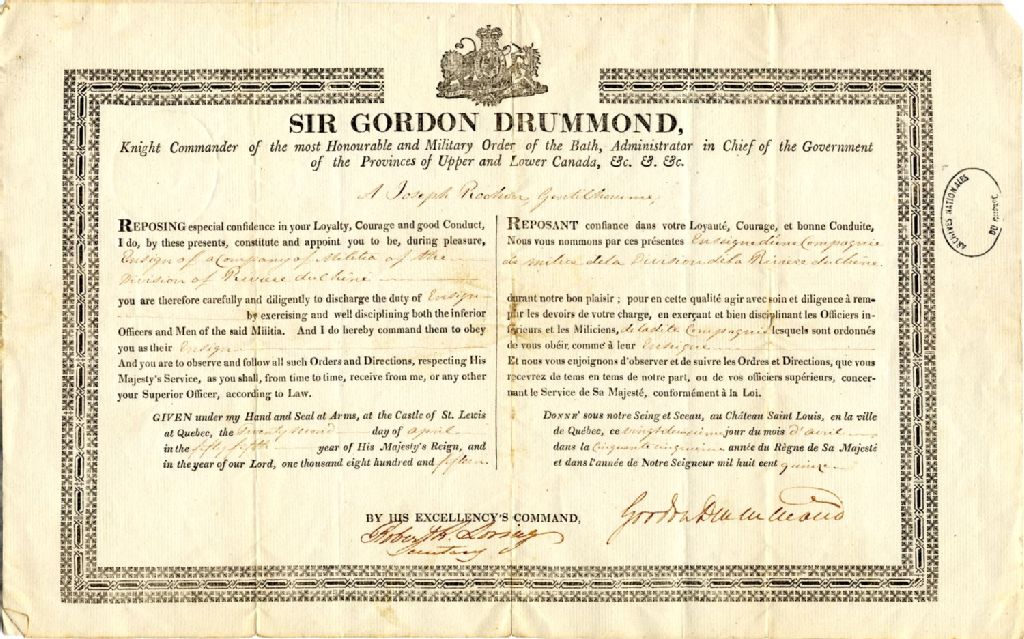 SIR GORDON DRUMMOND,
Knight Commander of the most Honourable and Military Order of the Bath, Administrator in Chief of the Government
of the Provinces of Upper and Lower Canada, &c. &. &c.
A Joseph Gentilhomme,
REPOSING especial confidence in your Loyalty, Courage and good Conduct,
I do, by these presents, constitute and appoint you to be, during pleasure,
Ensign of a Company of Militia of the
Division of Riviere du Chêne
you are therefore carefully and diligently to discharge the duty of Ensign
by exercising and well disciplining both the inferior
Officers and Men of the said Militia. And I do hereby command them to obey
you as their Ensign
And you are to observe and follow all such Orders and Directions, respecting His
Majesty's Service, as you shall, from time to time, receive from me, or any other
your Superior Officer, according to Law.
GIVEN under my Hand and Seal at Arms, at the Castle of St. Lewis
at Quebec, the twenty second day of April
in the fifty fifth year of His Majesty's Reign, and
in the year of our Lord, one thousand eight hundred and fifteen
REPOSANT confiance dans votre Loyauté, Courage, et bonne Conduite,
Nous vous nommons par ces présentes Enseigne d'une Compagnie
de milice de la Division de la Riviere du Chêne
durant notre bon plaisir ; pour en cette qualité agir avec soin et diligence à rem-
plir les devoirs de votre charge, en exerçant et bien disciplinant les Officiers in-
férieurs et les Miliciens, de ladite Compagnie lesquels sont ordonnés
de vous obéir, comme à leur Enseigne
Et nous vous enjoignons d'observer et de suivre les Ordres et Directions, que vous
recevrez de tems en tems de notre part, ou de vos officiers supérieurs, concer-
nant le Service de Sa Majesté, conformément à la Loi.
DONNÉ sous notre Seing et Sceau, au Château Saint Louis, en la ville
de Québec, ce vingt deuxieme jour du mois d'avril
dans la Cinquante cinquieme année du Règne de Sa Majesté
et dans l'année de Notre Seigneur mil huit cent quinze
Gordon Drummond
BY HIS EXCELLENCY'S COMMAND,
Robert R. Loring
Secretary
ARCHIVES NATIONALES
DU
QUÉBEC